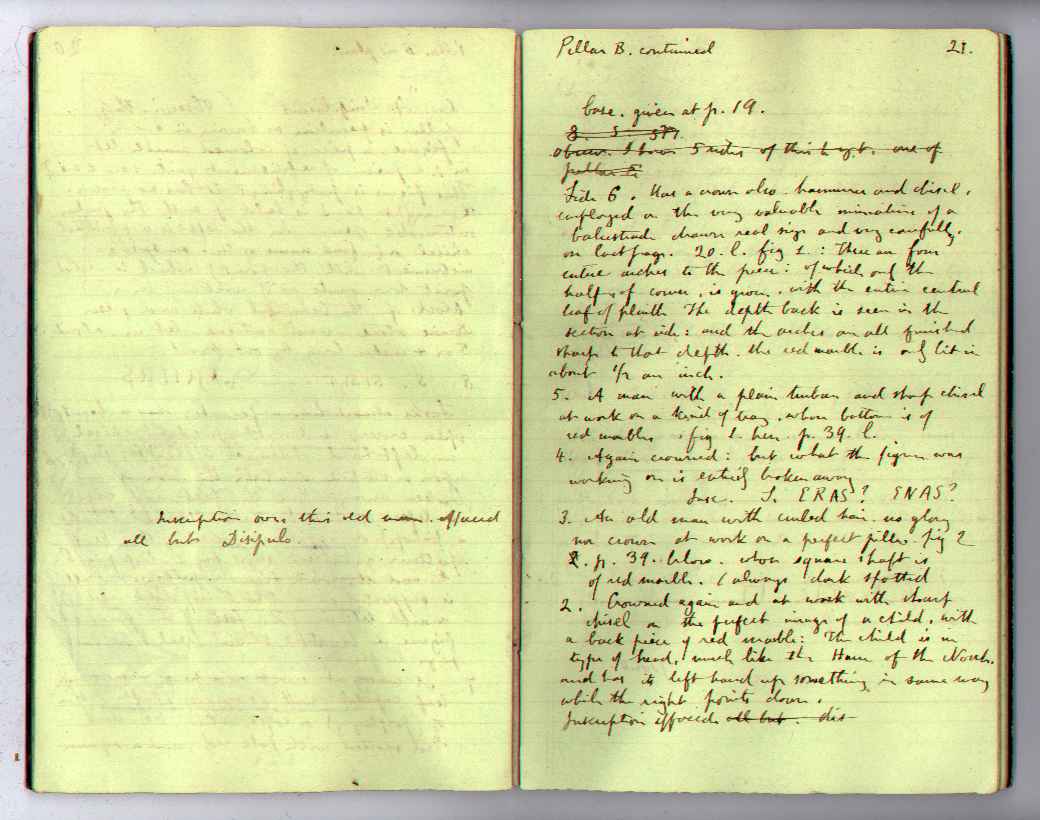 Inscription over this old man. effaced
all but Disipulo.
Pillar B. continued 21.
base. given at p. 19.
8. 5.
observe. I have 5 sides of this to get. one of
pillar
Side 6. Has a crown also. hammer and chisel,
employed on the very valuable miniature of a
balustrade drawn real size and very carefully,
on last page. 20. l. fig 1. : There are four
entire arches to the piece: of which only the
half of corner, is given, with the entire central
leaf of plinth The depth back is seen in the
section at side: and the arches are all finished
sharp to that depth. the red marble is only let in
about 1/2 an inch.
5. A man with a plain turban and sharp chisel
at work on a kind of tray, whose bottom is of
red marble. fig 1. here. p. 39. l.
4. Again crowned: but what the figure was
working on is entirely broken away
Insc. S. ERAS? ENAS?
3. An old man with curled hair. no glory
nor crown at work on a perfect pillar. fig 2
2. p. 39. below. whose square shaft is
of red marble. (always dark spotted
2. Crowned again and at work with sharp
chisel on the perfect image of a child, with
a back piece of red marble: The child is in
type of head, much like the Ham of the Noah.
and has its left hand up something in same way
while the right points down.
Inscription effaced all but. dis-